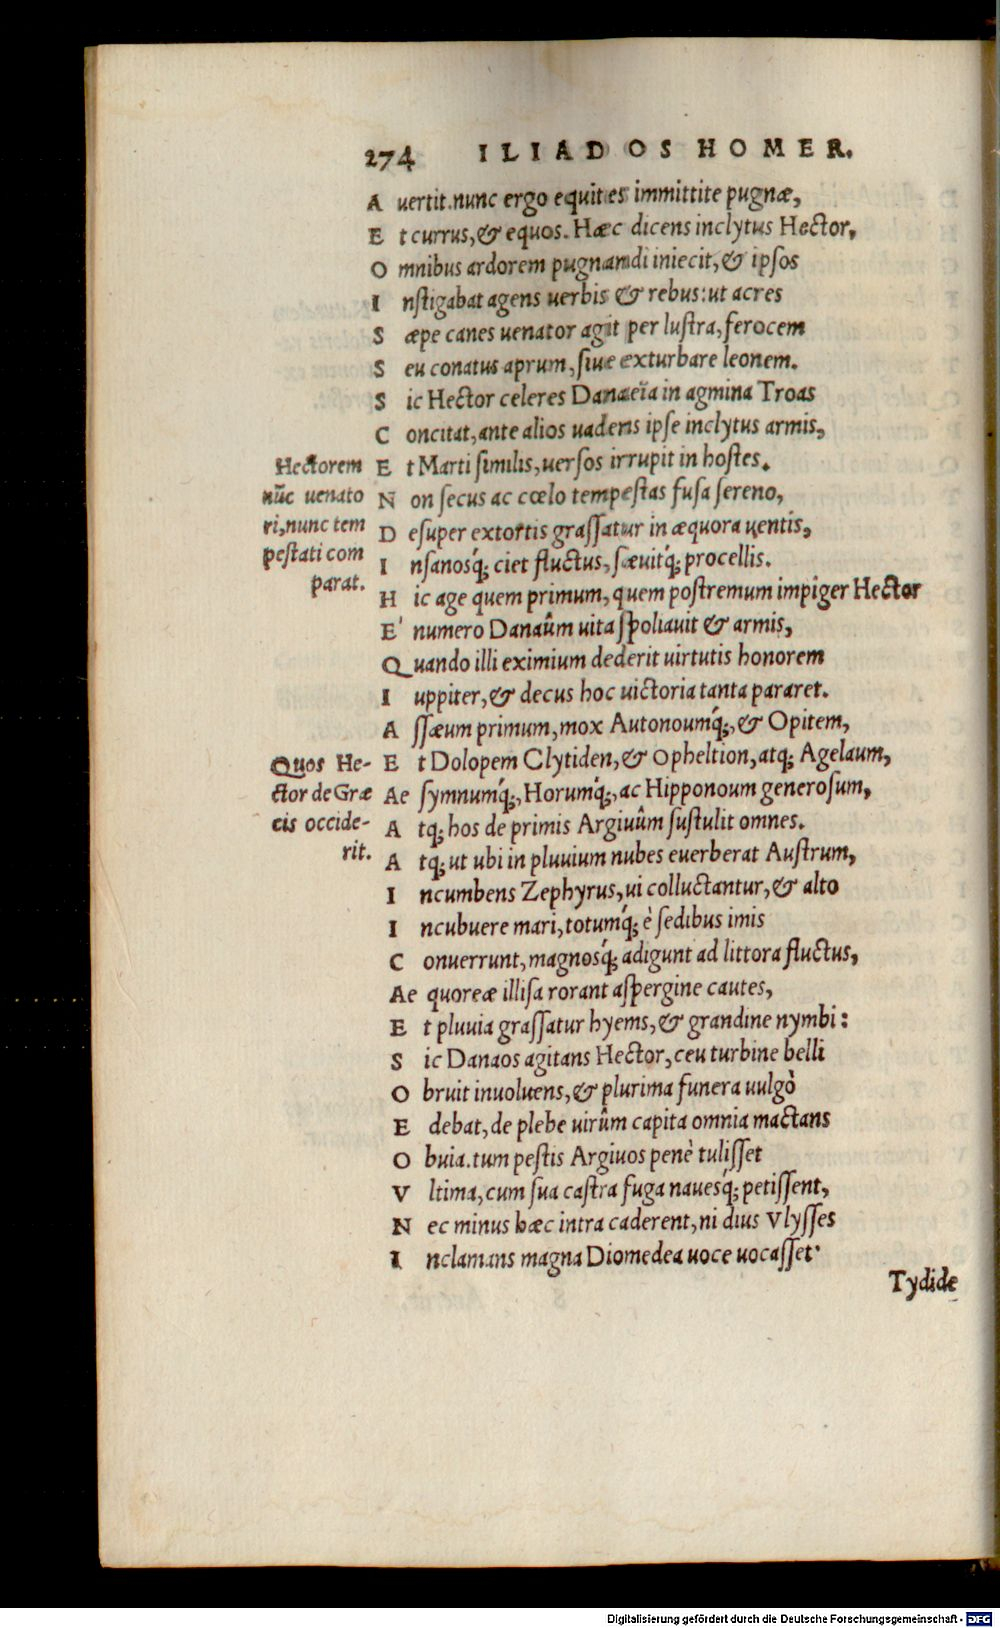 274 ILIADOS HOMER.
Auertit. nunc ergo equites immittite pugnæ,
Et currus, & equos. Hæc dicens inclytus Hector,
Omnibus ardorem pugnamdi iniecit, & ipsos
Instigabat agens uerbis & rebus: ut acres
Sæpe canes uenator agit per lustra, ferocem
Seu conatus aprum, siue exturbare leonem.
Sic Hector celeres Danaeia in agmina Troas
Concitat, ante alios uadens ipse inclytus armis,
Et Marti similis, uersos irrupit in hostes.
Non secus ac cœlo tempestas fusa sereno,
Desuper extortis grassatur in æquora uentis,
Insanosq́; ciet fluctus, sæuitq́; procellis.
Hic age quem primum, quem postremum impiger Hector
E' numero Danaûm uita spoliauit & armis,
Quando illi eximium dederit uirtutis honorem
Iuppiter, & decus hoc uictoria tanta pararet.
Assæum primum, mox Autonoumq́;, & Opitem,
Et Dolopem Clytiden, & Opheltion, atq; Agelaum,
Aesymnumq́;, Horumq́;, ac Hipponoum generosum,
Atq; hos de primis Argiuûm sustulit omnes.
Atq; ut ubi in pluuium nubes euerberat Austrum,
Incumbens Zephyrus, ui colluctantur, & alto
Incubuere mari, totumq́; è sedibus imis
Conuerrunt, magnosq́; adigunt ad littora fluctus,
Aequoreæ illisa rorant aspergine cautes,
Et pluuia grassatur hyems, & grandine nymbi:
Sic Danaos agitans Hector, ceu turbine belli
Obruit inuoluens, & plurima funera uulgò
Edebat, de plebe uirûm capita omnia mactans
Obuia. tum pestis Argiuos penè tulisset
Vltima, cum sua castra fuga nauesq́; petissent,
Nec minus hæc intra caderent, ni dius Vlysses
Inclamans magna Diomedea uoce uocasset·
Tydide
Hectorem
nũc uenato
ri, nunc tem
pestati com
parat.
Quos He-
ctor de Græ
cis occide-
rit.
Digitalisierung gefördert durch die Deutsche Forschungsgemeinschaft - DFG